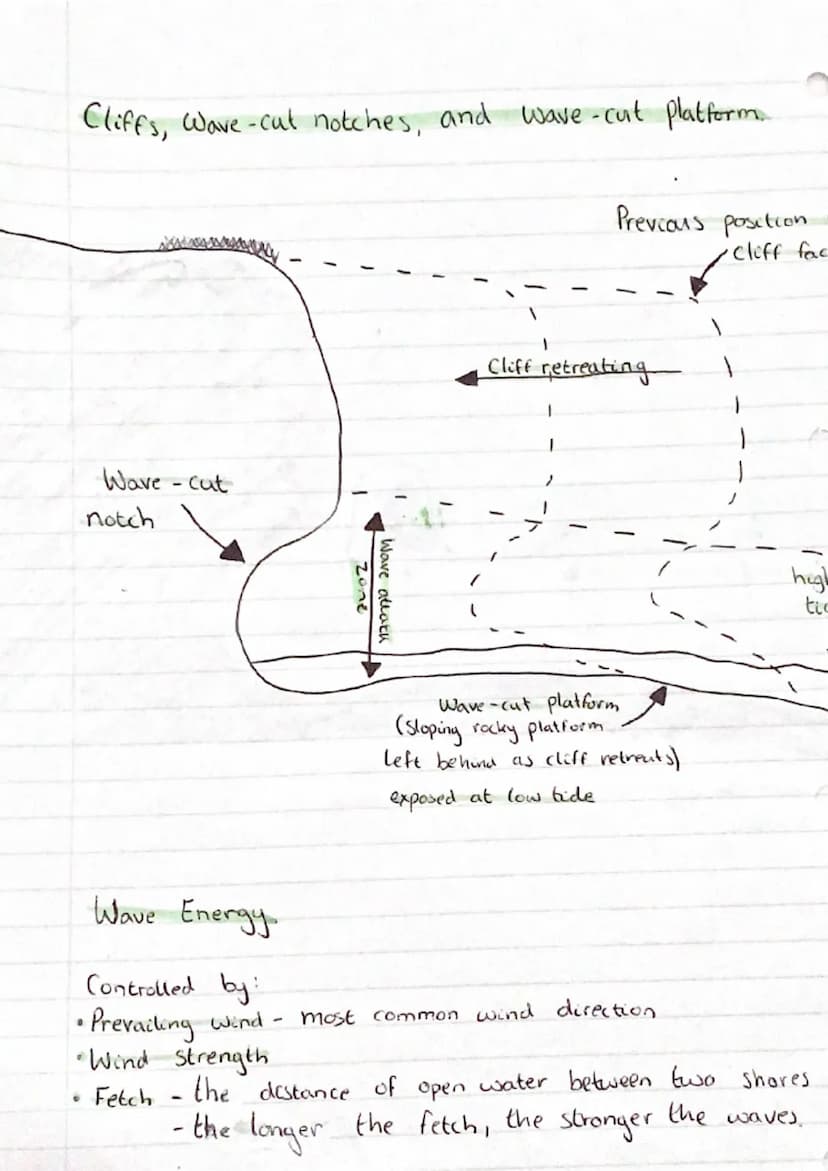 Cliffs, Wave-cut notches, and wave-cut platform.
Previous position
Cliff fac
Cliff retreating
Wave-cut
notch
Wave attack
Zone
high
tid
Wave-cut platform
(Sloping rocky platform
left behind as cliff retreats)
exposed at low tide
Wave Energy.
Controlled by:
• Prevailing wind - most common wind direction
• Wind Strength
• Fetch - the distance of open water between two shores
- the longer the fetch, the stronger the waves.